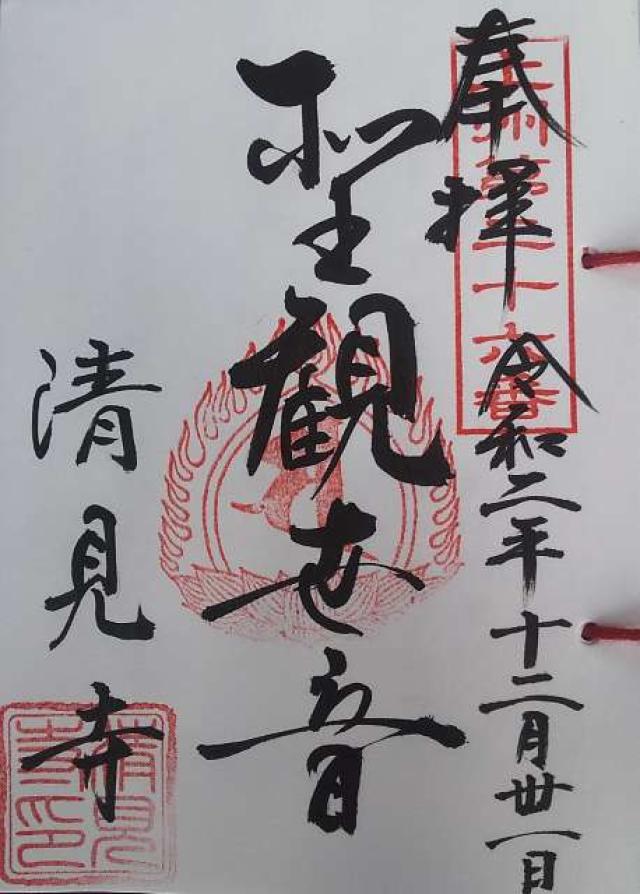 奉拝
十六番
令和二年十二月卅一日
聖観世音
清見寺
清見寺印